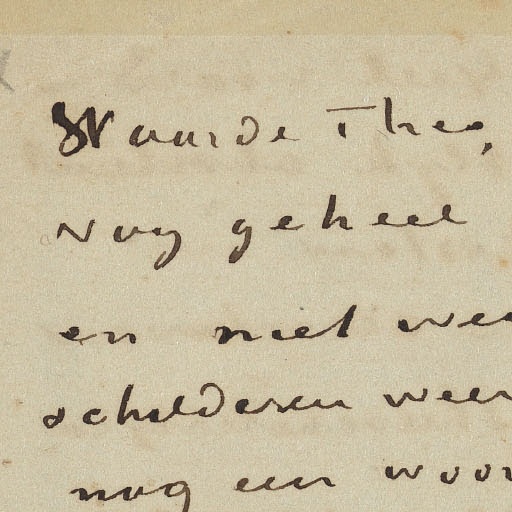 Waarde Theo,
Nog geheel
en niet wee
schilderen weer
nog een woor